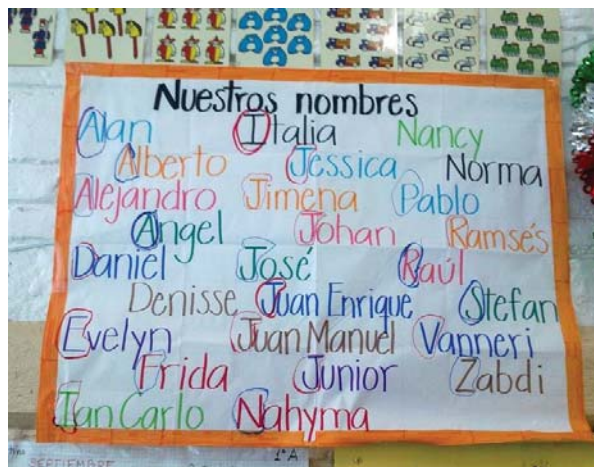 Nuestros nombres
Alan Italia Nancy
Alberto Jessica Norma
Alejandro Jimena Pablo
Angel Johan Ramsés
Daniel José Raúl
Denisse Juan Enrique Stefan
Evelyn Juan Manuel Vanneri
Frida Junior Zabdi
Ian Carlo Nahyma
SEPTIEMBRE 1°A